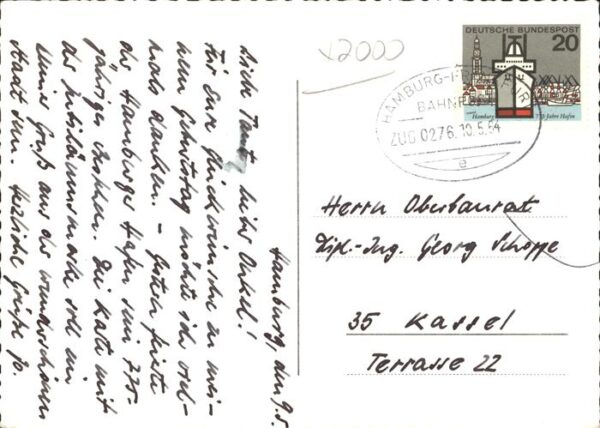 Hamburg, den 9.5.
Liebe Tante, lieber Onkel!
Für Eure Glückwünsche zu mei-
nem Geburtstag möchte ich viel-
mals danken. – Gestern feierte
der Hamburger Hafen sein 775-
jähriges Bestehen. Die Karte mit
der Jubiläumsmarke soll ein
kleiner Gruß aus der wunderschönen
Stadt sein. Herzliche Grüße
x2000
DEUTSCHE BUNDESPOST
20
Hamburg 775 Jahre Hafen
HAMBURG-FR
BAHNPO
ZUG 0276 10.5.64
e
Herrn Oberbaurat
Dipl.-Ing. Georg Schoppe
35 Kassel
Terrasse 22